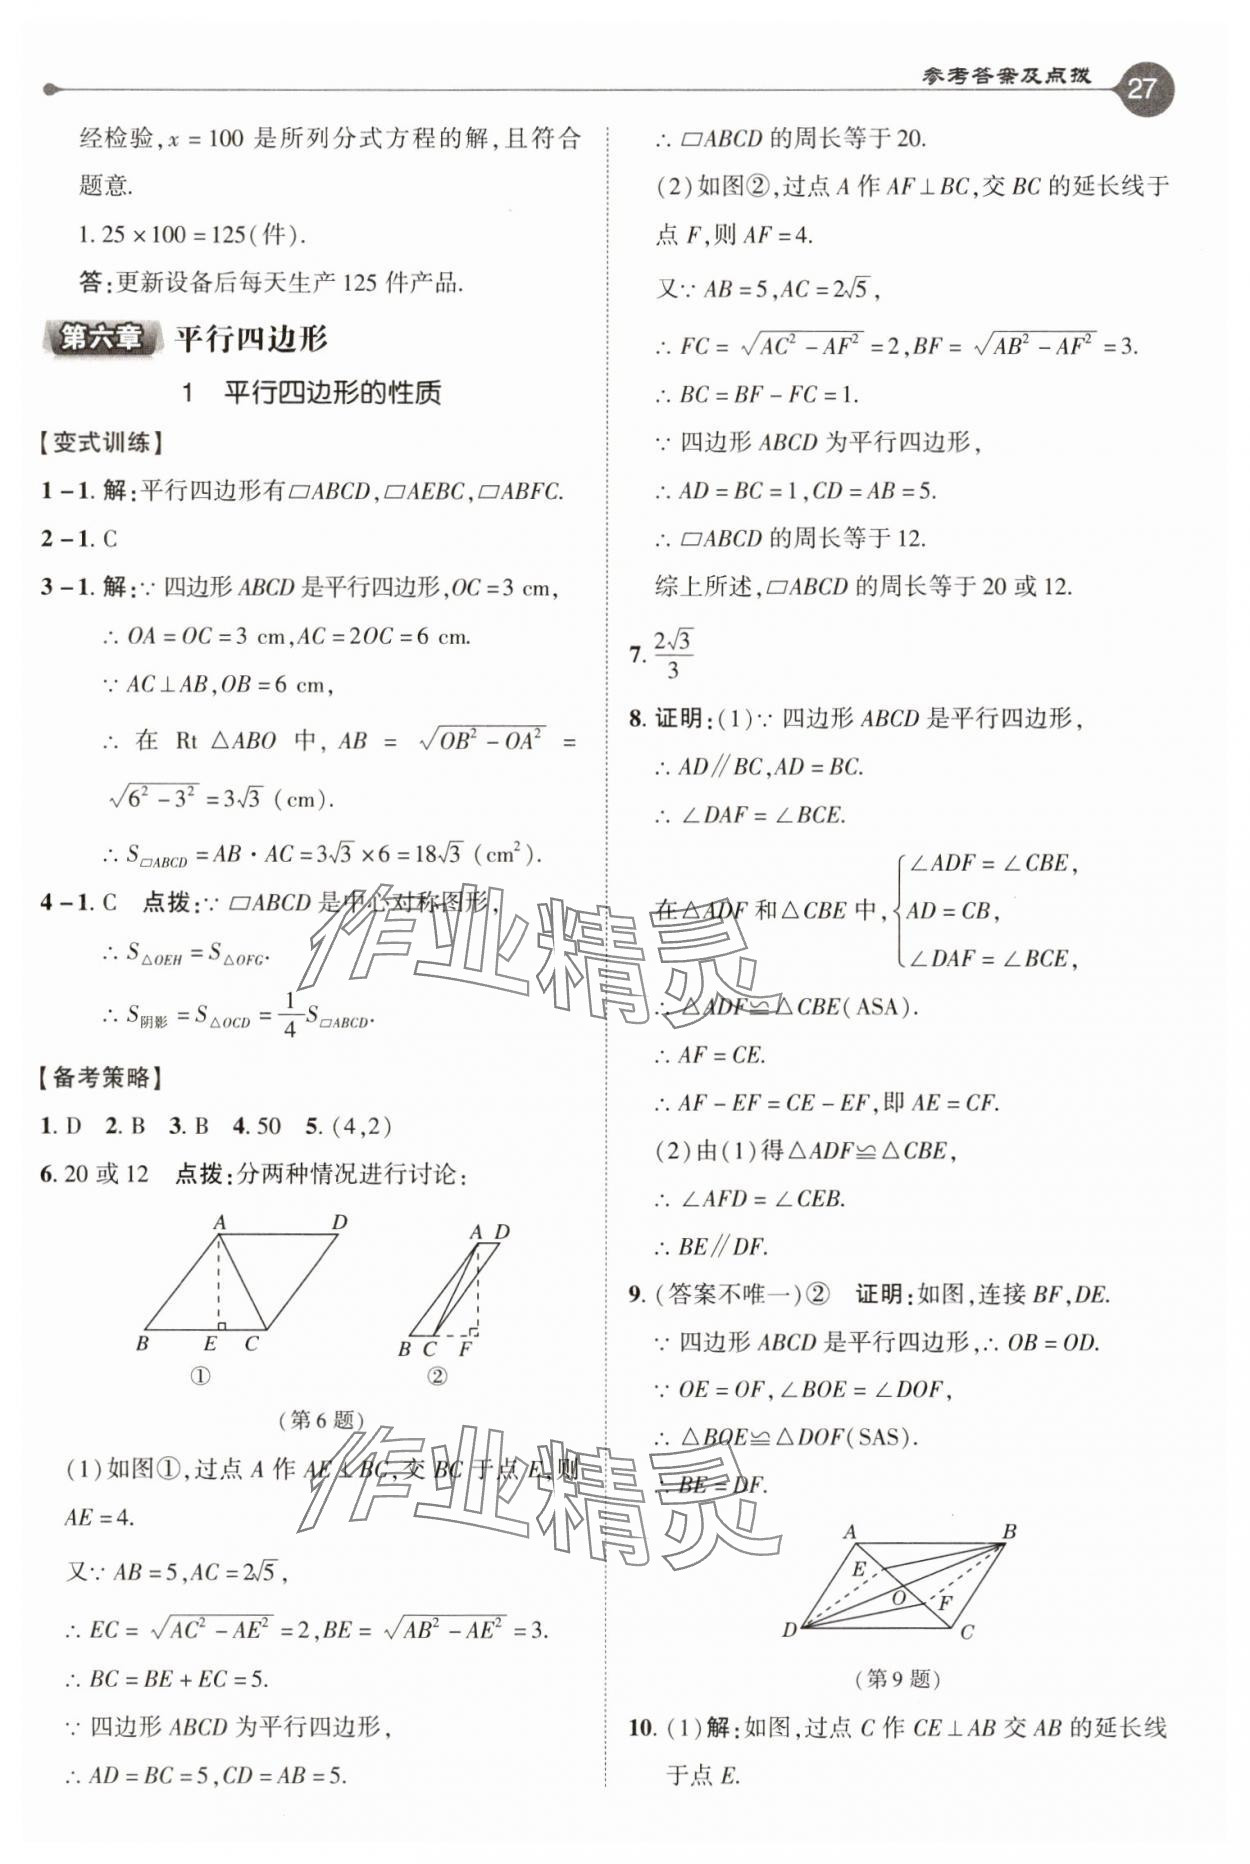 参考答案及点拨 27
经检验,x=100 是所列分式方程的解,且符合
题意.
1.25×100=125(件).
答:更新设备后每天生产 125 件产品.
第六章 平行四边形
1 平行四边形的性质
【变式训练】
1-1. 解:平行四边形有▱ABCD,▱AEBC,▱ABFC.
2-1. C
3-1. 解:∵ 四边形 ABCD 是平行四边形,OC=3 cm,
∴ OA=OC=3 cm,AC=2OC=6 cm.
∵ AC⊥AB,OB=6 cm,
∴ 在 Rt △ABO 中, AB = √(OB²-OA²) =
√(6²-3²)=3√3 (cm).
∴ S▱ABCD=AB·AC=3√3×6=18√3 (cm²).
4-1. C 点拨:∵ ▱ABCD 是中心对称图形,
∴ S△OEH=S△OFG.
∴ S阴影=S△OCD=1/4 S▱ABCD.
【备考策略】
1. D 2. B 3. B 4. 50 5. (4,2)
6. 20 或 12 点拨:分两种情况进行讨论:
A D
B E C
①
A D
B C F
②
(第 6 题)
(1)如图①,过点 A 作 AE⊥BC,交 BC 于点 E,则
AE=4.
又∵ AB=5,AC=2√5,
∴ EC=√(AC²-AE²)=2,BE=√(AB²-AE²)=3.
∴ BC=BE+EC=5.
∵ 四边形 ABCD 为平行四边形,
∴ AD=BC=5,CD=AB=5.
∴ ▱ABCD 的周长等于 20.
(2)如图②,过点 A 作 AF⊥BC,交 BC 的延长线于
点 F,则 AF=4.
又∵ AB=5,AC=2√5,
∴ FC=√(AC²-AF²)=2,BF=√(AB²-AF²)=3.
∴ BC=BF-FC=1.
∵ 四边形 ABCD 为平行四边形,
∴ AD=BC=1,CD=AB=5.
∴ ▱ABCD 的周长等于 12.
综上所述,▱ABCD 的周长等于 20 或 12.
7. 2√3/3
8. 证明:(1)∵ 四边形 ABCD 是平行四边形,
∴ AD∥BC,AD=BC.
∴ ∠DAF=∠BCE.
∠ADF=∠CBE,
在△ADF 和△CBE 中,{AD=CB,
∠DAF=∠BCE,
∴ △ADF≌△CBE(ASA).
∴ AF=CE.
∴ AF-EF=CE-EF,即 AE=CF.
(2)由(1)得△ADF≌△CBE,
∴ ∠AFD=∠CEB.
∴ BE∥DF.
9. (答案不唯一)② 证明:如图,连接 BF,DE.
∵ 四边形 ABCD 是平行四边形,∴ OB=OD.
∵ OE=OF,∠BOE=∠DOF,
∴ △BOE≌△DOF(SAS).
∴ BE=DF.
A B
E
O
F
D C
(第 9 题)
10. (1)解:如图,过点 C 作 CE⊥AB 交 AB 的延长线
于点 E.
作业精灵
作业精灵